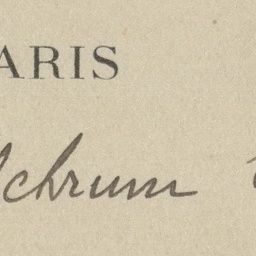 ARIS
chrum